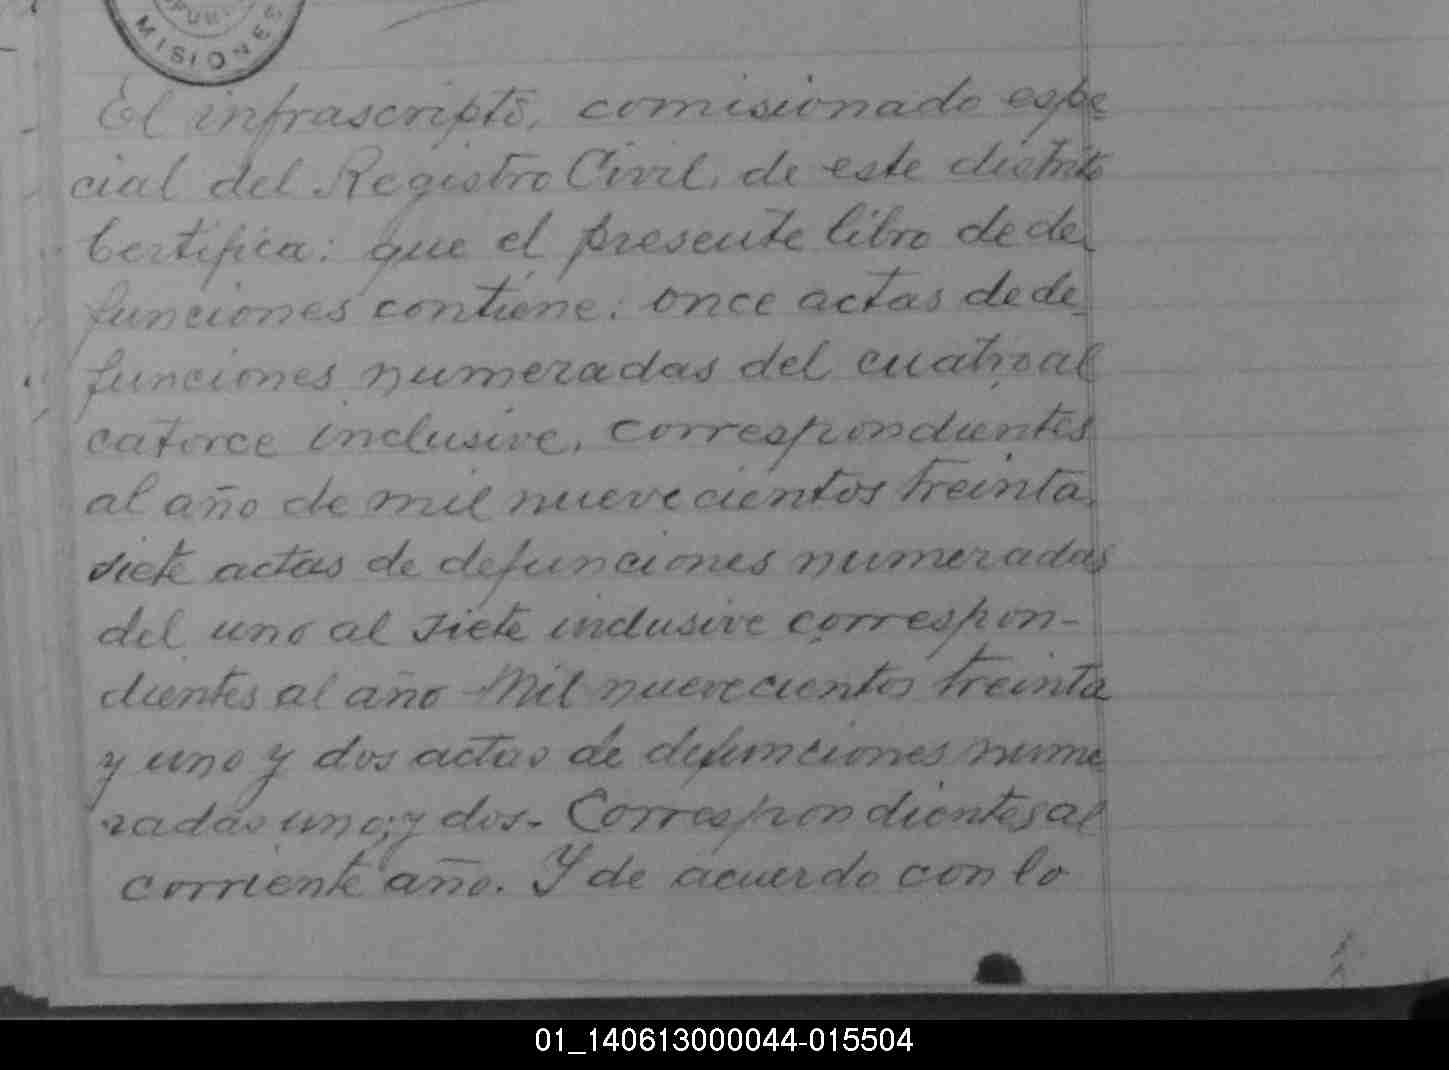 MISIONES
El infrascripto, comisionado espe
cial del Registro Civil, de este distrito
Certifica: que el presente libro de de
funciones contiene: once actas de de
funciones numeradas del cuatro al
catorce inclusive, correspondientes
al año de mil nuevecientos treinta,
siete actas de defunciones numeradas
del uno al siete inclusive correspon-
dientes al año Mil nuevecientos treinta
y uno y dos actas de defunciones nume
radas uno; y dos. Correspondientes al
corriente año. Y de acuerdo con lo
01_140613000044-015504